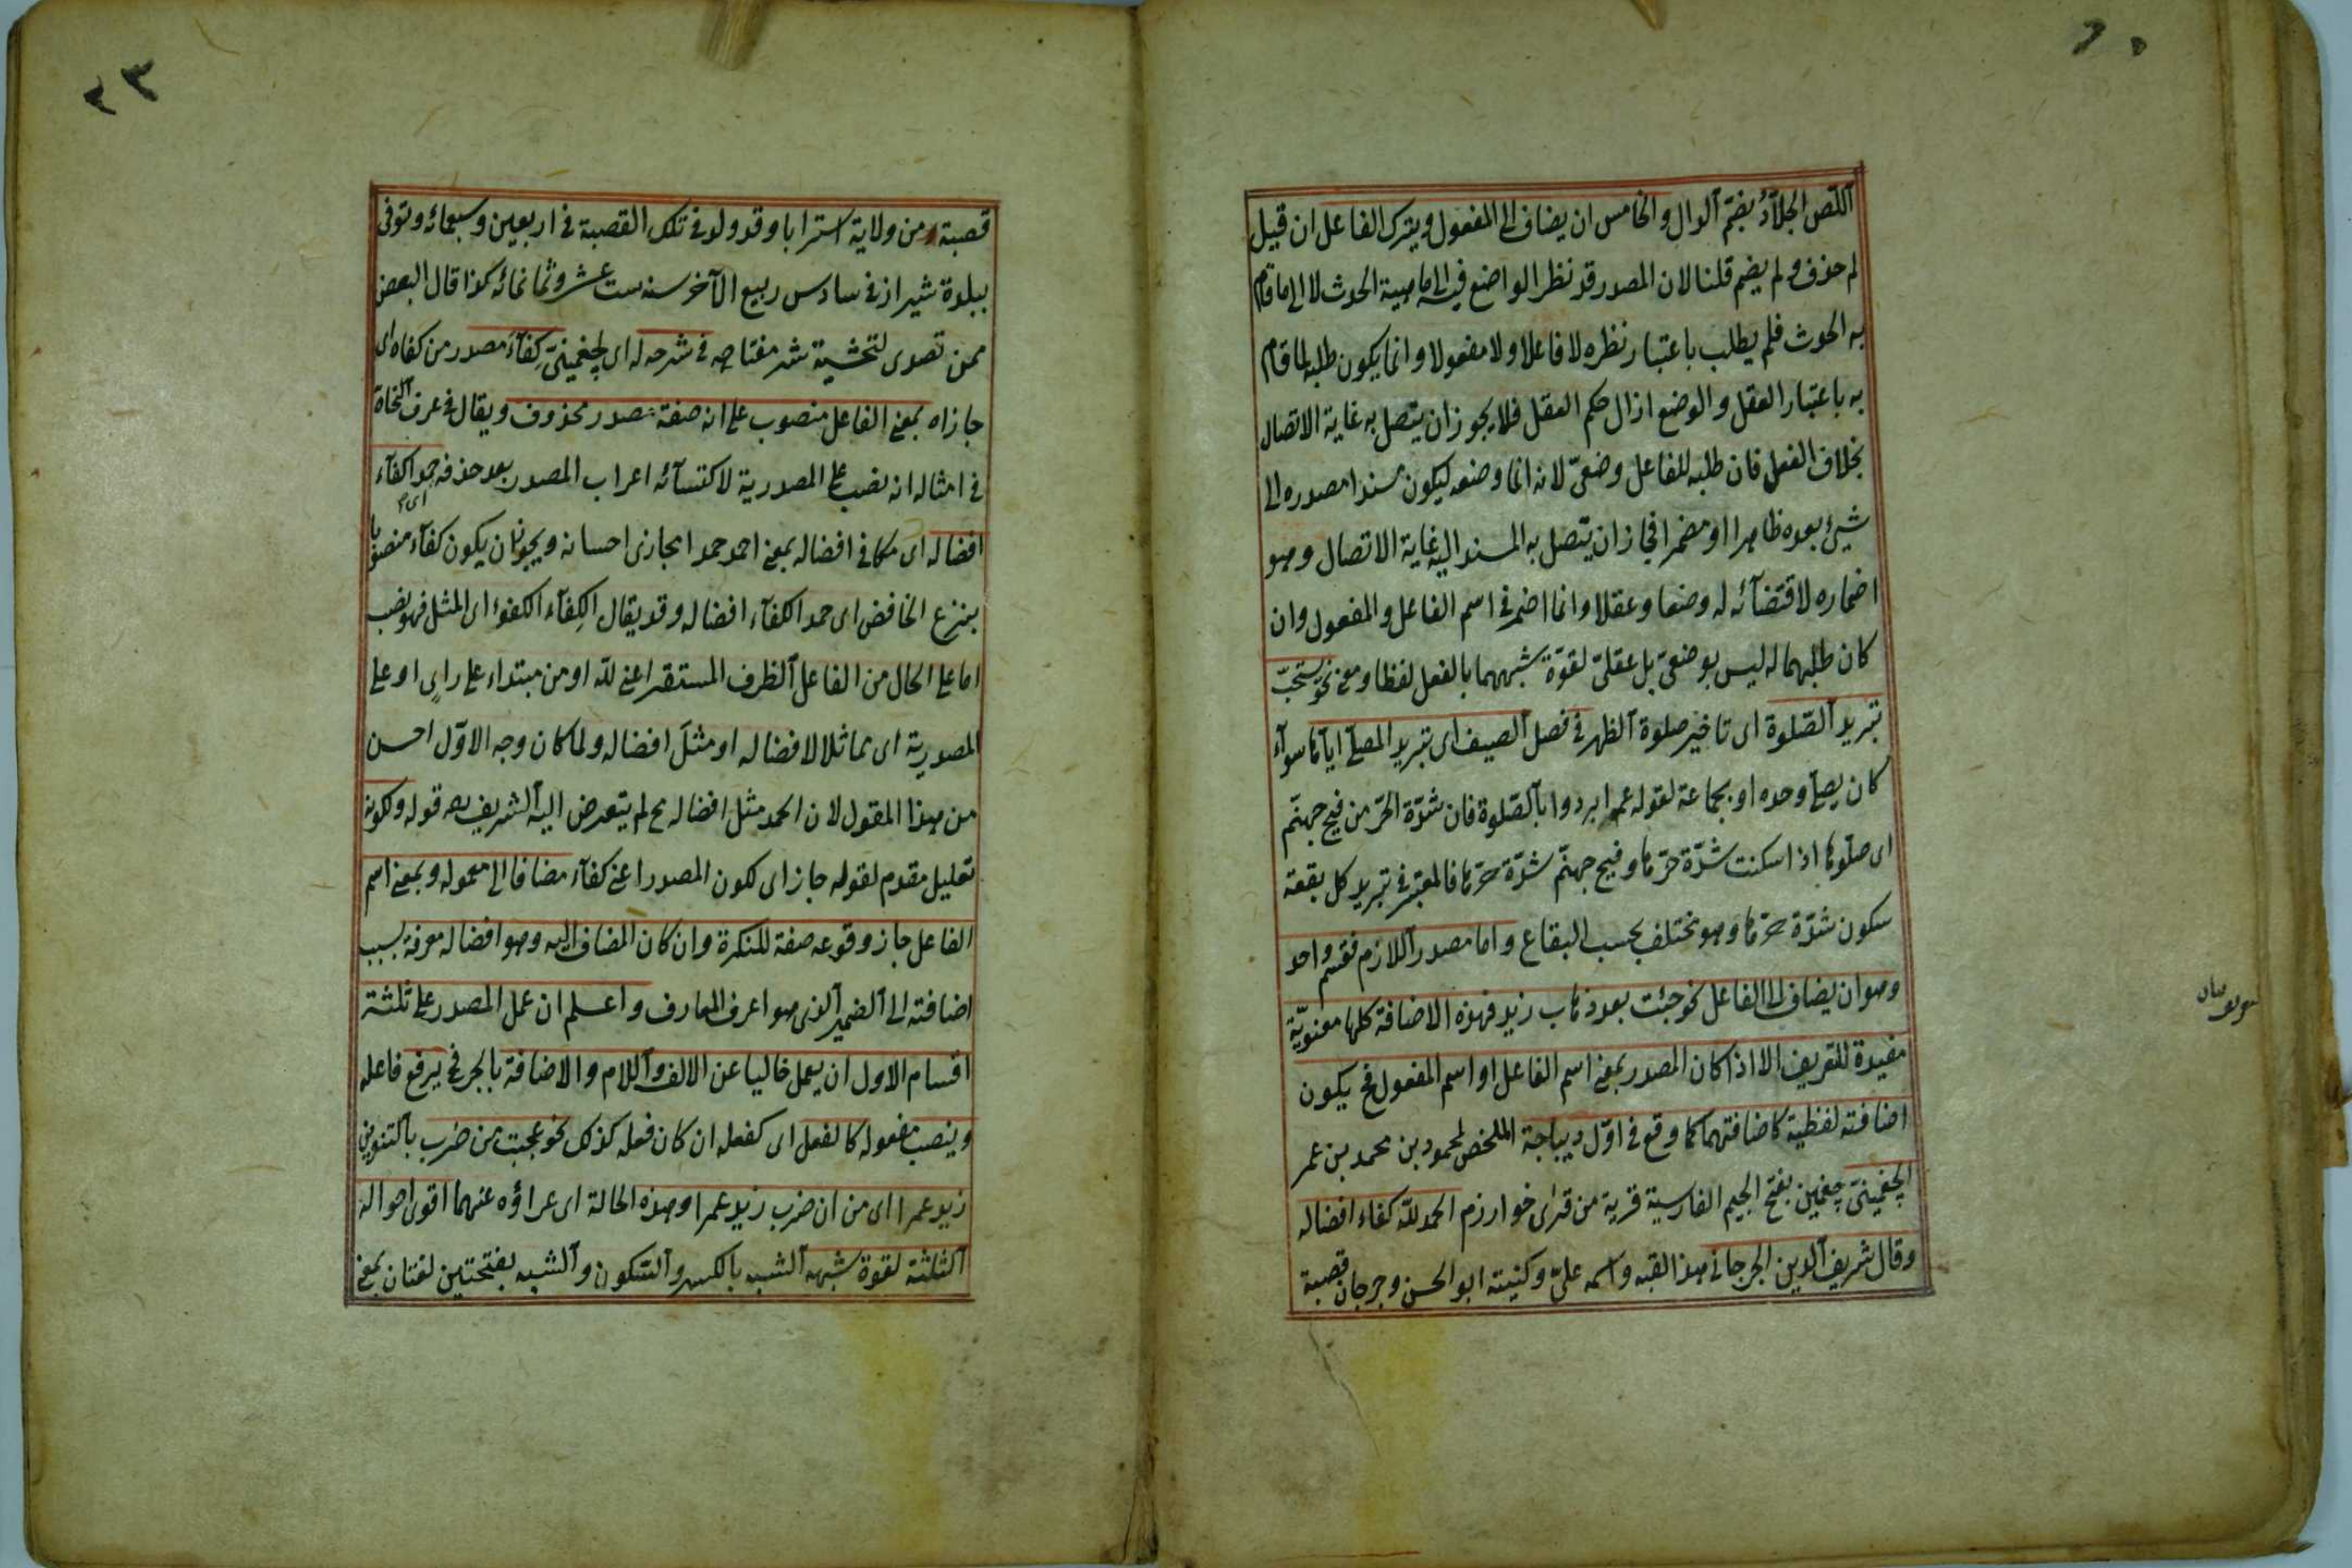 اللّص الجلّادُ بضمّ الدال والخامس ان يضاف الى المفعول ويترك الفاعل ان قيل
لم حذف ولم يضم قلنا لان المصدر قد نظر الواضع فيه الى ماهية الحدث لا الى ما قام
به الحدث فلم يطلب باعتبار نظره لا فاعلا ولا مفعولا وانما يكون طلبه لما قام
به باعتبار العقل والوضع ازال حكم العقل فلا يجوز ان يتصل به غاية الاتصال
بخلاف الفعل فان طلبه للفاعل وضعىّ لانه انما وضعه ليكون مسندا مصدره الى
شيئ بعده ظاهرا او مضمرا فجاز ان يتصل به المسند اليه غاية الاتصال وهو
اضماره لاقتضآئه له وضعا وعقلا وانما اضمر فى اسم الفاعل والمفعول وان
كان طلبهما له ليس بوضعىّ بل عقلىّ لقوّة شبههما بالفعل لفظا ومعنى نحو يستحبّ
تبريد الصّلوة اى تاخير صلوة الظهر فى فصل الصيف اى تبريد المصلّى اياها سوآء
كان يصلى وحده او بجماعة لقوله عم ابردوا بالصّلوة فان شدّة الحرّ من فيح جهنّم
اى صلّوها اذا سكنت شدّة حرّها وفيح جهنّم شدّة حرّها فالمعتبر فى تبريد كل بقعة
سكون شدّة حرّها وهو تختلف بحسب البقاع واما مصدر اللازم فقسم واحد
وهو ان يضاف الى الفاعل نحو جئت بعد ذهاب زيد فهذه الاضافة كلها معنويّة
مفيدة للتعريف الا اذا كان المصدر بمعنى اسم الفاعل او اسم المفعول فح يكون
اضافته لفظية كاضافتهما كما وقع فى اوّل ديباجة الملخص لمحمود بن محمد بن عمر
الچغمينىّ چغمين بفتح الجيم الفارسية قرية من قرٰى خوارزم الحمد للّه كفاء افضاله
وقال شريف الدين الجرجانى هذا لقبه واسمه علىّ وكنيته ابو الحسن وجرجان قصبة
٣٣
قصبة من ولاية استراباد وقد ولد فى تلك القصبة فى اربعين وسبعمائه وتوفى
ببلدة شيراز فى سادس ربيع الآخر سنه ست عشر وثمانمائه كذا قال البعض
ممن تصدى لتحشية شر مفتاحه فى شرحه له اى لچغمينىّ كِفآءَ مصدر من كفاه اى
جازاه بمعنى الفاعل منصوب على انه صفة مصدر محذوف ويقال فى عرف النحاة
فى امثاله انه نصب على المصدرية لاكتسآئه اعراب المصدر بعد حذفه حمدا كفآء
افضاله اى مكافى افضاله بمعنى احمد حمدا يجازى احسانه ويجوز ان يكون كفآء منصوبا
بنزع الخافض اى حمد الكفآء افضاله وقد يقال الكِفآء الكفوء اى المثل فهو نصب
اما على الحال من الفاعل الظرف المستقر اعنى للّه او من مبتداء على راىٍ او على
المصدرية اى مماثلا لافضاله او مثلَ افضاله ولما كان وجه الاوّل احسن
من هذا المقول لان الحمد مثل افضاله مح لم يتعرض اليه الشريف رحمه قوله ولكونه
تعليل مقدم لقوله جاز اى لكون المصدر اعنى كفآء مضافا الى معموله وبمعنى اسم
الفاعل جاز وقوعه صفة للنكرة وان كان المضاف اليه وهو افضاله معرفة بسبب
اضافته الى الضمير الذى هو اعرف المعارف واعلم ان عمل المصدر على ثلثة
اقسام الاول ان يعمل خاليا عن الالف واللام والاضافة بالجر فح يرفع فاعله
وينصب مفعوله كالفعل اى كفعله ان كان فعله كذلك نحو عجبت من ضرب بالتنوين
زيد عمرا اى من ان ضرب زيد عمرا وهذه الحالة اى عراؤه عنهما اقوى احواله
الثلثة لقوة شبهه الشبه بالكسر والسّكون والشبه بفتحتين لغتان بمعنى